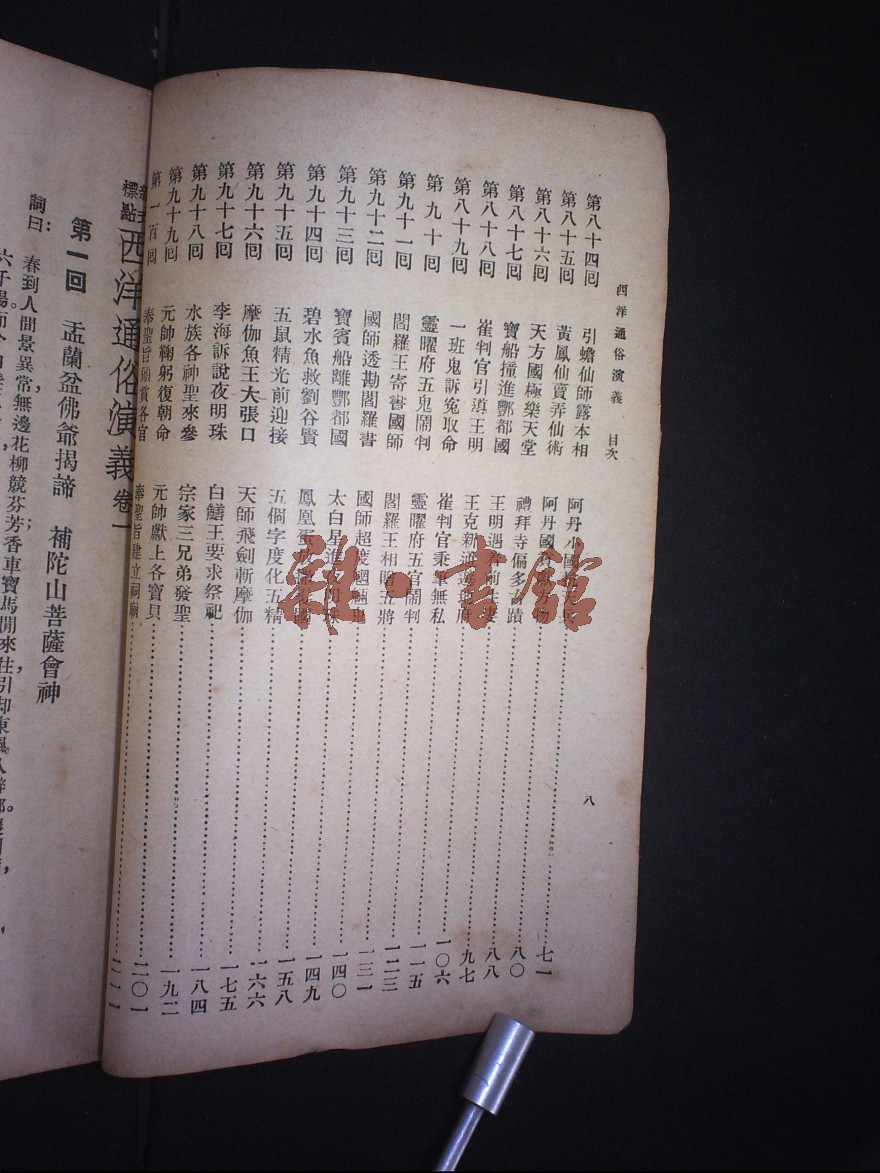 西洋通俗演義 目次 八
第八十四回 引蟾仙師露本相 阿丹小國 七一
第八十五回 黃鳳仙賣弄仙術 阿丹國 方物 八〇
第八十六回 天方國極樂天堂 禮拜寺偏多古蹟 八八
第八十七回 寶船撞進酆都國 王明遇 前生妻 九七
第八十八回 崔判官引導王明 王克新遍遊地府 一〇六
第八十九回 一班鬼訴冤取命 崔判官秉筆無私 一一五
第九十回 靈曜府五鬼鬧判 靈曜府五官鬧判 一二三
第九十一回 閻羅王寄書國師 閻羅王相贈五將 一三一
第九十二回 國師透勘閻羅書 國師超度魍魎鬼 一四〇
第九十三回 寶賓船離酆都國 太白星進夜明珠 一四九
第九十四回 碧水魚救劉谷賢 鳳凰蛋放撒髮國 一五八
第九十五回 五鼠精光前迎接 五個字度化五精 一六六
第九十六回 摩伽魚王大張口 天師飛劍斬摩伽 一七五
第九十七回 李海訴說夜明珠 白鱔王要求祭祀 一八四
第九十八回 水族各神聖來參 宗家三兄弟發聖 一九二
第九十九回 元帥鞠躬復朝命 元帥獻上各寶貝 二〇一
第一百回 奉聖旨頒賞各官 奉聖旨建立祠廟 二一一
標點 西洋通俗演義 卷一
第一回 盂蘭盆佛爺揭諦 補陀山菩薩會神
詞曰: 春到人間景異常,無邊花柳競芬芳;香車寶馬閒來往,引却東風入醉鄉。
雜·書館